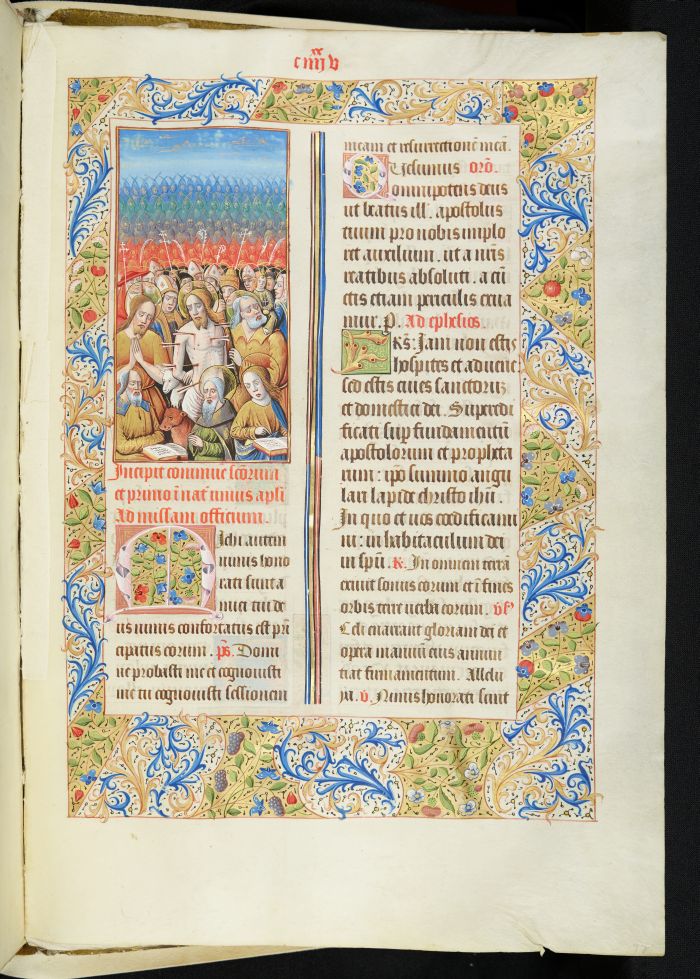 c iiii xx v
Incipit comune sctõrum
et primo ĩ nat̃ unius apl̃i
Ad missam officium.
Michi autem
nimis hono
rati sunt a
mici tui de
us nimis confortatus est prĩ
cipatus eorum . p̃s. Domi
ne probasti me et cognouisti
me tu cognouisti sessionem
meam et resurrectionẽ meã.
Quesumus orõ.
omnipotens deus
ut beatus ill'. apostolus
tuum pro nobis implo
ret auxilium. ut a nr̃is
reatibus absoluti. a cũ
ctis etiam periculis exua
mur. P. Ad ephesios
FRs̃: Iam non estis
hospites et aduene
sed estis ciues sanctorũ
et domestici dei. Superedi
ficati sup̃ fundamentũ
apostolorum et propheta
rum: ip̃o summo angu
lari lapide christo ihũ.
In quo et uos coedificami
ni: in habitaculum dei
in spũ. R. In omnem terrã
exiuit sonus eorum et ĩ fines
orbis terre uerba eorum. vs̃
Celi enarrant gloriam dei et
opera manuũm eius annun
tiat firmamentum. Allelu
ia. v. Nimis honorati sunt